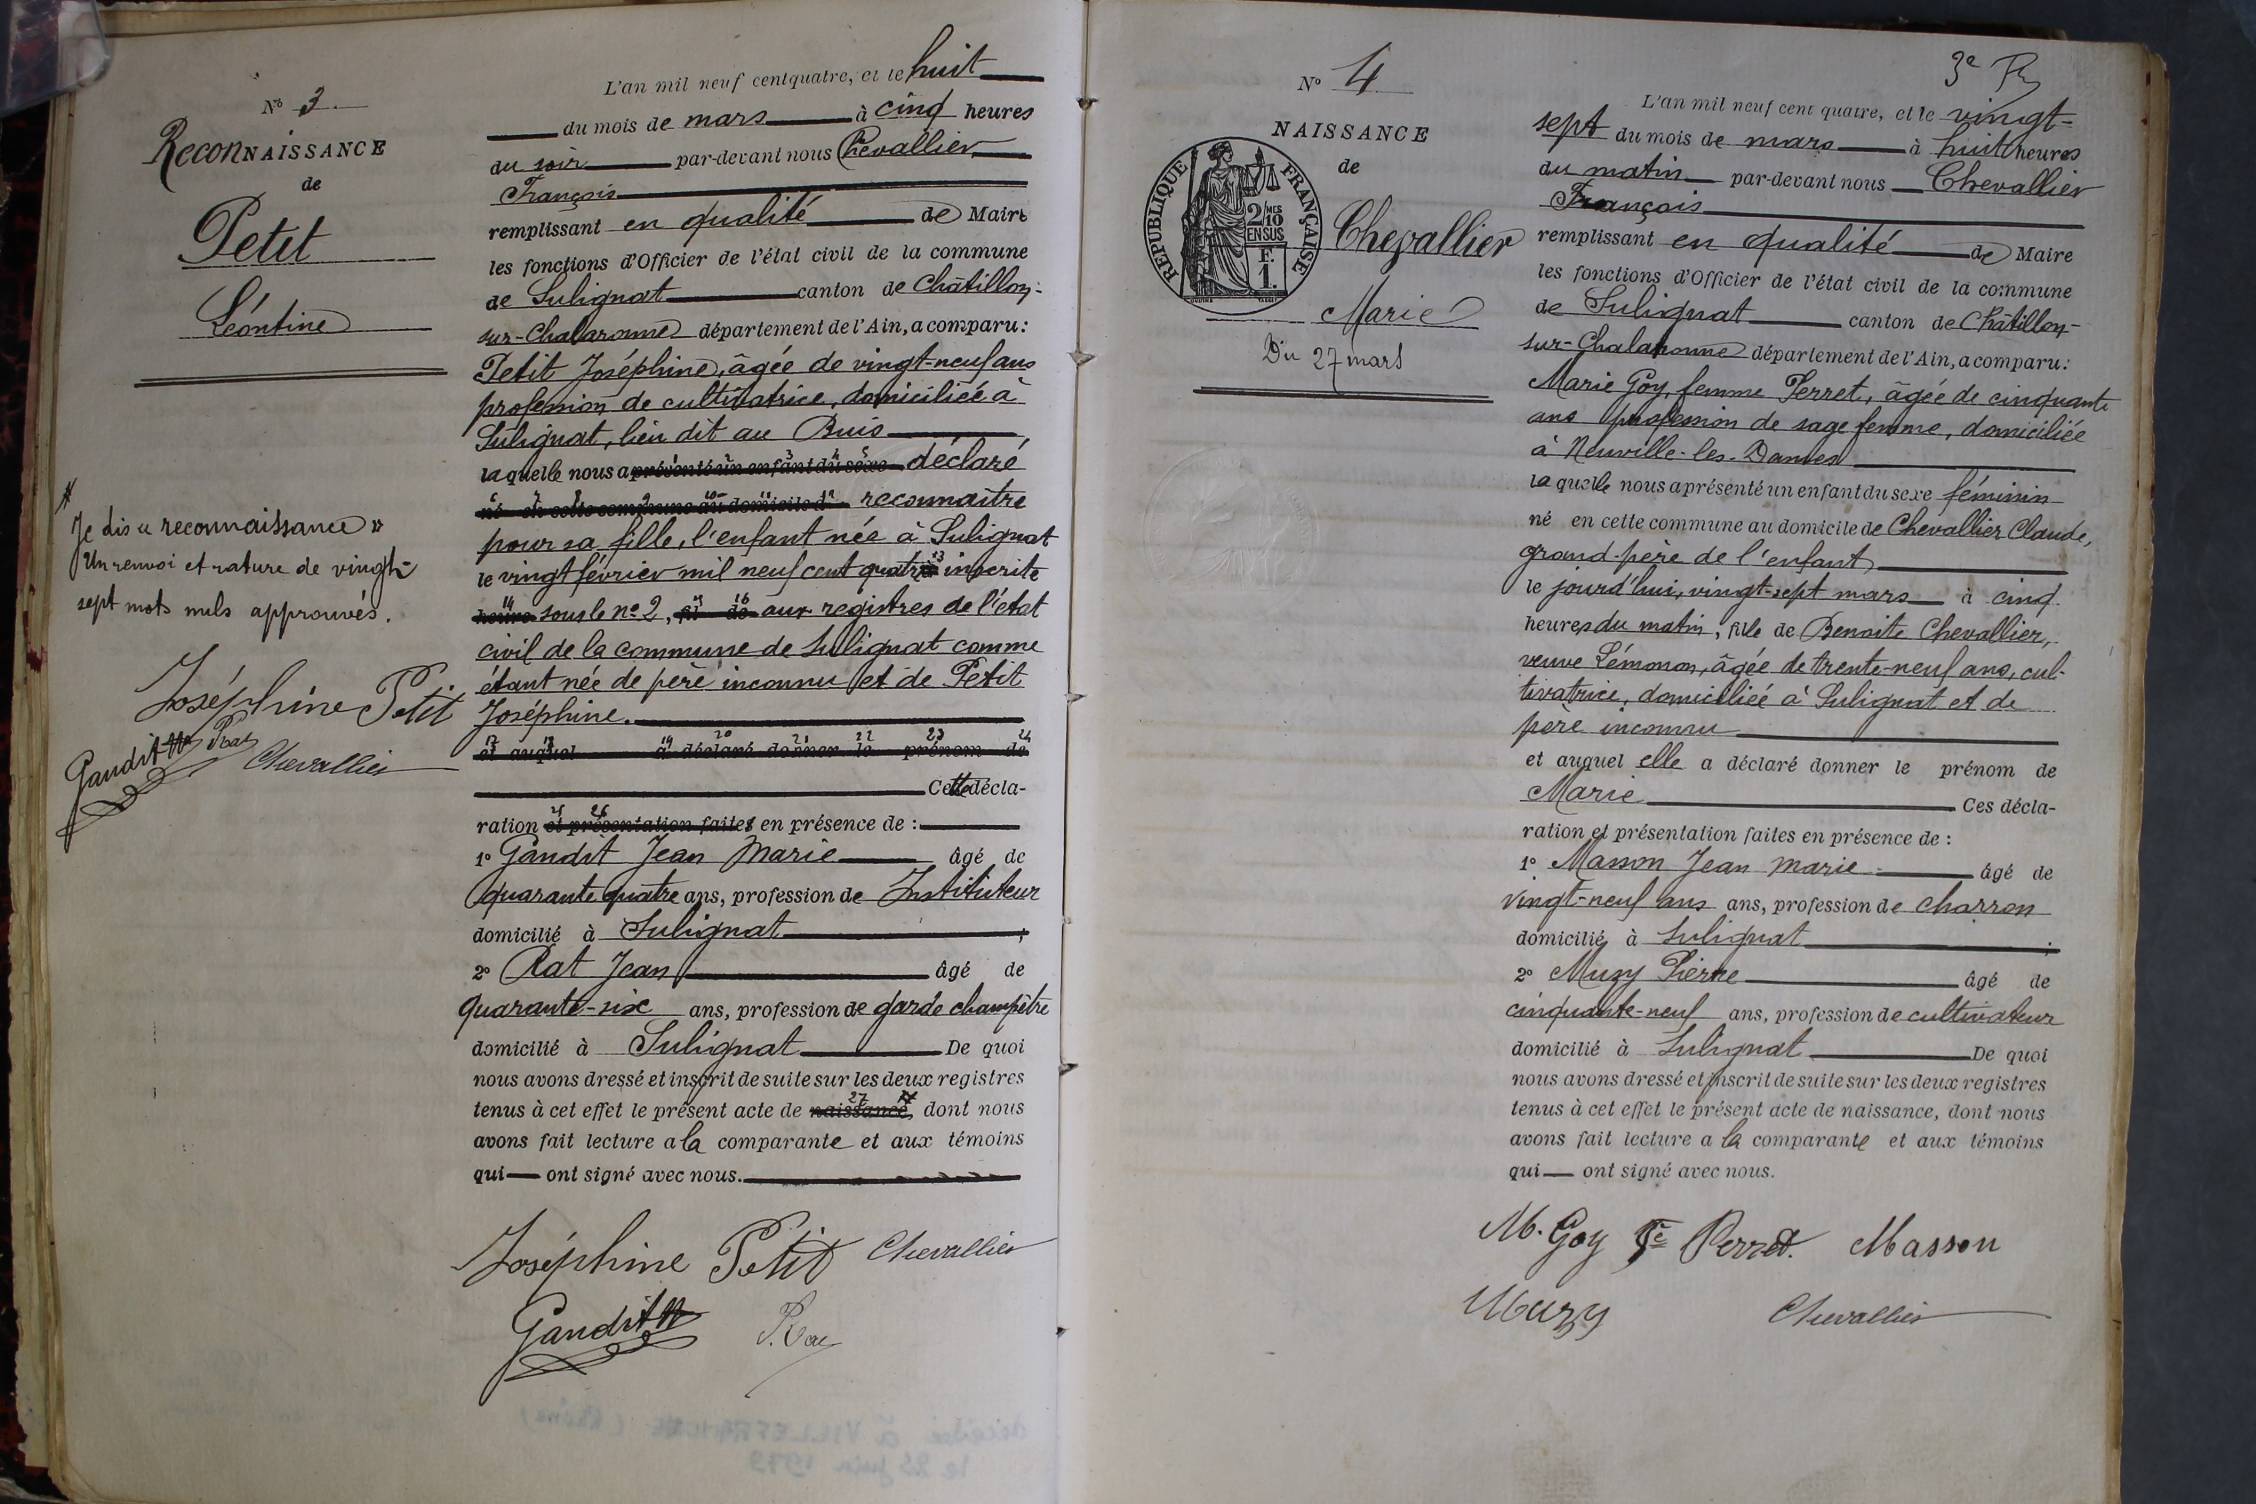 Nº 3
ReconNAISSANCE
de
Petit
Léontine
Je dis « reconnaissance »
Un renvoi et rature de vingt-
sept mots nuls approuvés.
Joséphine Petit
Gandit Rat
Chevallier
L'an mil neuf cent quatre, et le huit
du mois de mars à cinq heures
du soir par-devant nous Chevallier
François
remplissant en qualité de Maire
les fonctions d'Officier de l'état civil de la commune
de Sulignat canton de Châtillon-
sur-Chalaronne département de l'Ain, a comparu:
Petit Joséphine, âgée de vingt-neuf ans
profession de cultivatrice, domiciliée à
Sulignat, lieu dit au Buis
laquelle nous a présenté un enfant du sexe déclaré
né en cette commune au domicile d reconnaître
pour sa fille, l'enfant née à Sulignat
le vingt février mil neuf cent quatre inscrite
heure sous le nº 2, fil de aux registres de l'état
civil de la commune de Sulignat comme
étant née de père inconnu et de Petit
Joséphine.
et auquel a déclaré donner le prénom de
Cette décla-
ration et présentation faites en présence de :
1º Gandit Jean Marie âgé de
quarante quatre ans, profession de Instituteur
domicilié à Sulignat ;
2º Rat Jean âgé de
quarante-six ans, profession de garde champêtre
domicilié à Sulignat De quoi
nous avons dressé et inscrit de suite sur les deux registres
tenus à cet effet le présent acte de naissance, dont nous
avons fait lecture a la comparante et aux témoins
qui ont signé avec nous.
Joséphine Petit Chevallier
Gandit Rat
Nº 4
NAISSANCE
de
RÉPUBLIQUE FRANÇAISE
2/10 MES
EN SUS
F.
1.
Chevallier
Marie
Du 27 mars
3e
L'an mil neuf cent quatre, et le vingt-
sept du mois de mars à huit heures
du matin par-devant nous Chevallier
François
remplissant en qualité de Maire
les fonctions d'Officier de l'état civil de la commune
de Sulignat canton de Châtillon-
sur-Chalaronne département de l'Ain, a comparu:
Marie Goy, femme Perret, âgée de cinquante
ans profession de sage femme, domiciliée
à Neuville-les-Dames
laquelle nous a présenté un enfant du sexe féminin
né en cette commune au domicile de Chevallier Claude,
grand-père de l'enfant
le jourd'hui, vingt-sept mars à cinq
heures du matin, fille de Benoite Chevallier,
veuve Lémonon, âgée de trente-neuf ans, cul-
tivatrice, domiciliée à Sulignat et de
père inconnu
et auquel elle a déclaré donner le prénom de
Marie Ces décla-
ration et présentation faites en présence de :
1º Masson Jean Marie âgé de
vingt-neuf ans ans, profession de charron
domicilié à Sulignat ;
2º Muzy Pierre âgé de
cinquante-neuf ans, profession de cultivateur
domicilié à Sulignat De quoi
nous avons dressé et inscrit de suite sur les deux registres
tenus à cet effet le présent acte de naissance, dont nous
avons fait lecture a la comparante et aux témoins
qui ont signé avec nous.
M. Goy Fe Perret. Masson
Muzy Chevallier